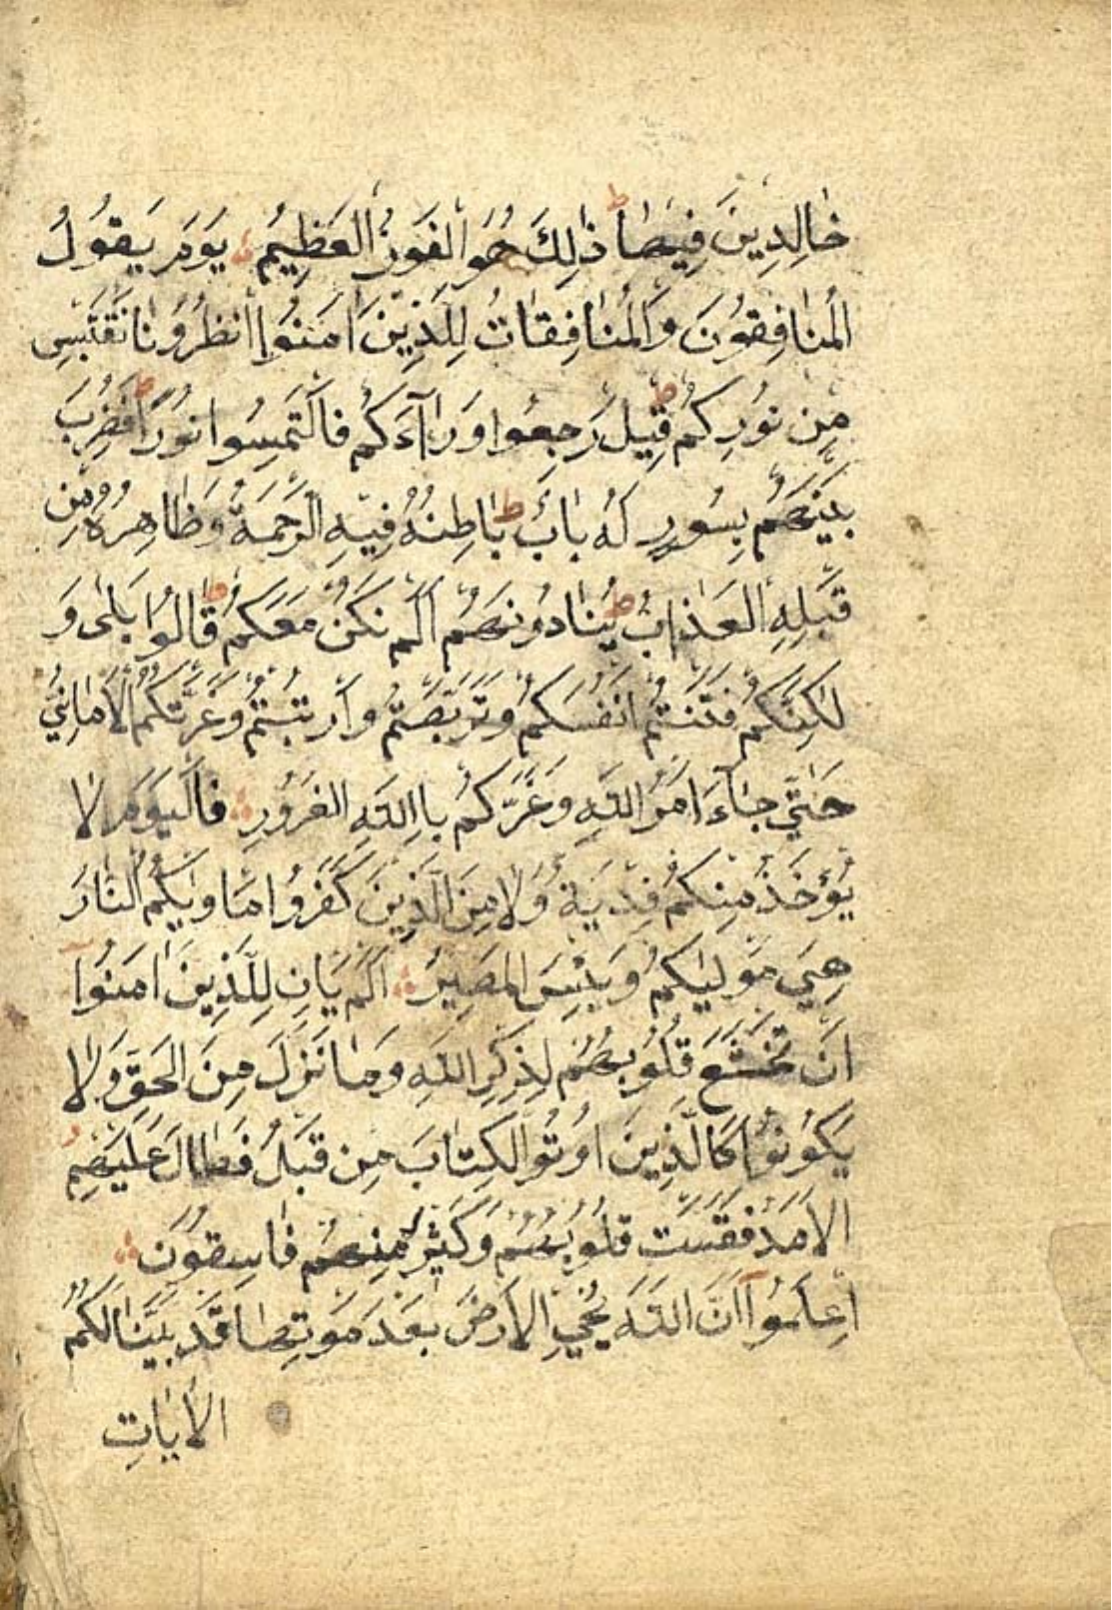 خَالِدِينَ فِيهَا ط ذٰلِكَ هُوَ الْفَوْزُ الْعَظِيمُ يَوْمَ يَقُولُ
الْمُنَافِقُونَ وَالْمُنَافِقَاتُ لِلَّذِينَ اٰمَنُوا انْظُرُونَا نَقْتَبِسْ
مِنْ نُورِكُمْ ط قِيلَ رْجِعُوا وَرَآءَكُمْ فَالْتَمِسُوا نُورًا ط فَضُرِبَ
بَيْنَهُمْ بِسُورٍ لَهُ بَابٌ ط بَاطِنُهُ فِيهِ الرَّحْمَةُ وَظَاهِرُهُ مِنْ
قِبَلِهِ الْعَذَابُ ط يُنَادُونَهُمْ اَلَمْ نَكُنْ مَعَكُمْ ط قَالُوا بَلٰى وَ
لٰكِنَّكُمْ فَتَنْتُمْ اَنْفُسَكُمْ وَتَرَبَّصْتُمْ وَارْتَبْتُمْ وَغَرَّتْكُمُ الْاَمَانِيُّ
حَتّٰى جَآءَ اَمْرُ اللّٰهِ وَغَرَّكُمْ بِااللّٰهِ الْغَرُورِ فَالْيَوْمَ لَا
يُؤْخَذُ مِنْكُمْ فِدْيَةٌ وَلَا مِنَ الَّذِينَ كَفَرُوا مَاْوٰيكُمُ النَّارُ
هِىَ مَوْلٰيكُمْ وَبِئْسَ الْمَصِيرُ اَلَمْ يَاْنِ لِلَّذِينَ اٰمَنُوا
اَنْ تَخْشَعَ قُلُوبُهُمْ لِذِكْرِ اللّٰهِ وَمَا نَزَلَ مِنَ الْحَقِّ وَلَا
يَكُونُوا كَالَّذِينَ اُوتُوا الْكِتَابَ مِنْ قَبْلُ فَطَالَ عَلَيْهِمُ
الْاَمَدُ فَقَسَتْ قُلُوبُهُمْ وَكَثِيرٌ مِنْهُمْ فَاسِقُونَ
اِعْلَمُوا اَنَّ اللّٰهَ يُحْيِ الْاَرْضَ بَعْدَ مَوْتِهَا قَدْ بَيَّنَّا لَكُمُ
الْاٰيَاتِ